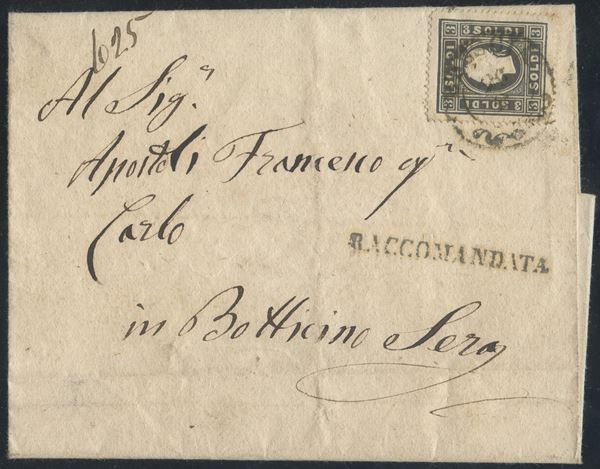 625
3 SOLDI 3
SOLDI SOLDI
3 SOLDI 3
Al Sig.r
Apostoli Francesco q.m
Carlo
RACCOMANDATA
in Botticino Sera